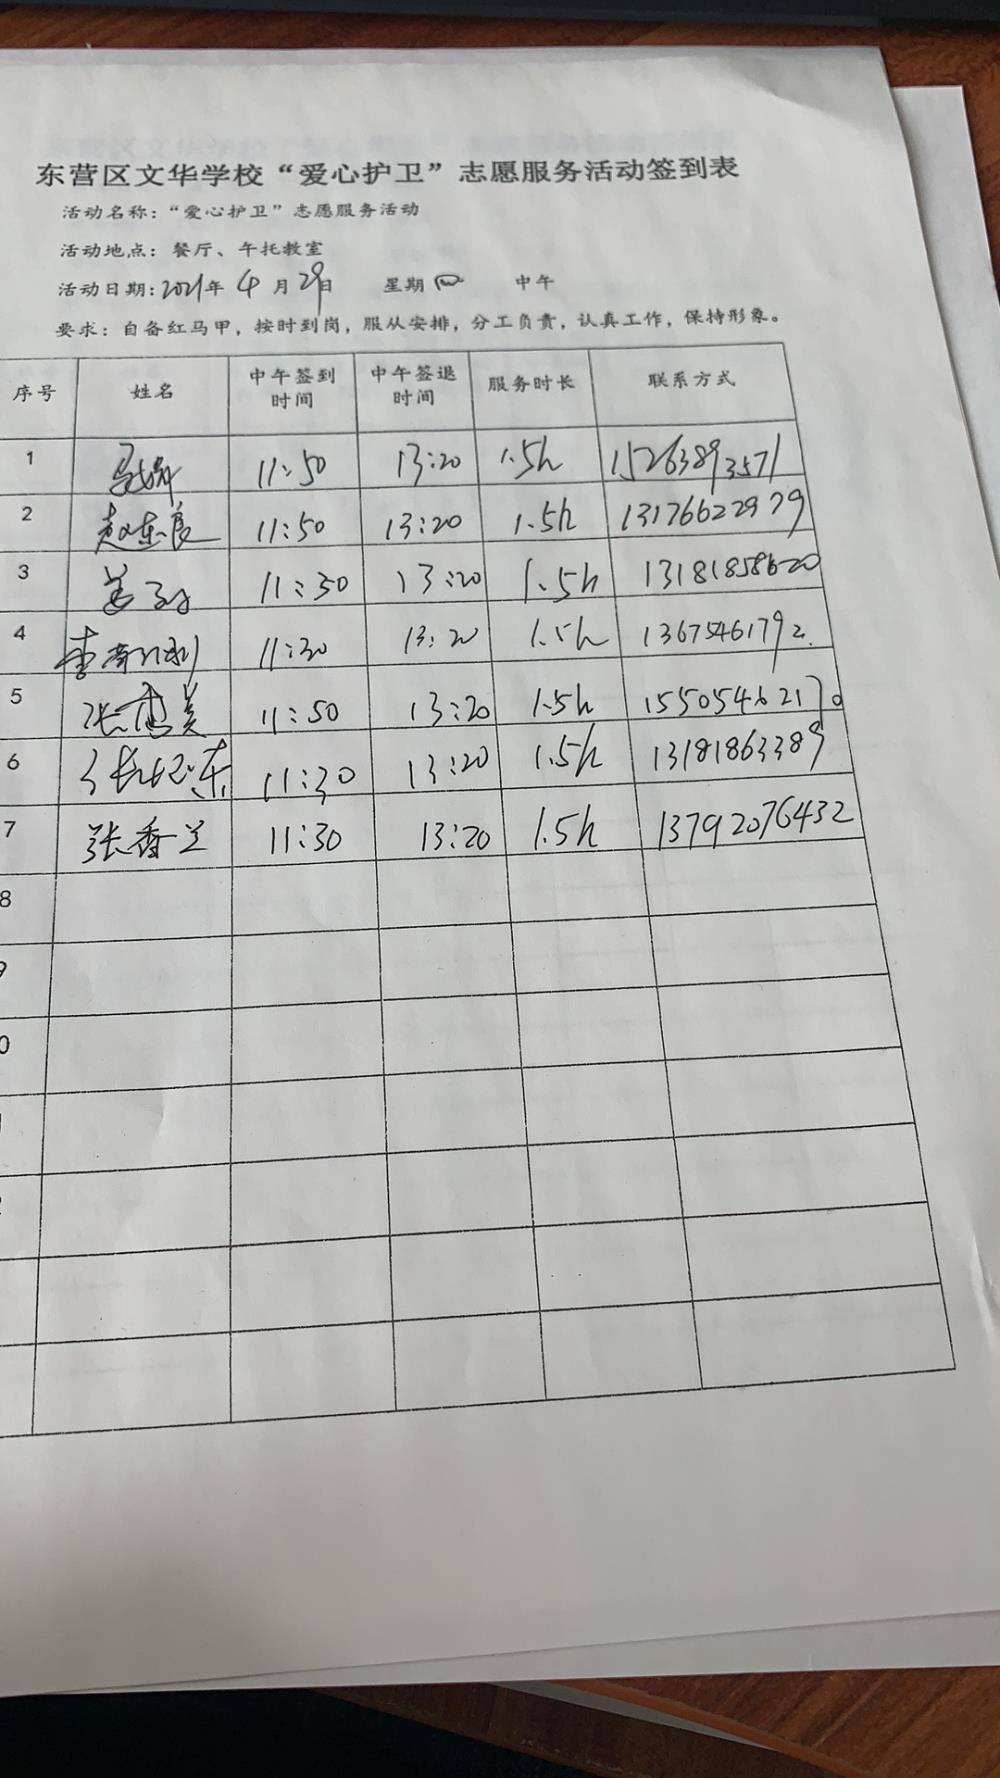 东营区文华学校“爱心护卫”志愿服务活动签到表
活动名称：“爱心护卫”志愿服务活动
活动地点：餐厅、午托教室
活动日期：2021年 4月 29日 星期四 中午
要求：自备红马甲，按时到岗，服从安排，分工负责，认真工作，保持形象。
序号 姓名 中午签到时间 中午签退时间 服务时长 联系方式
1 11:50 13:20 1.5h 15263893571
2 赵东良 11:50 13:20 1.5h 13176622979
3 姜 11:30 13:20 1.5h 13181858620
4 李 11:30 13:20 1.5h 13675461792
5 张惠美 11:50 13:20 1.5h 15505462170
6 11:30 13:20 1.5h 13181863389
7 张香兰 11:30 13:20 1.5h 13792076432
8
9
0
2